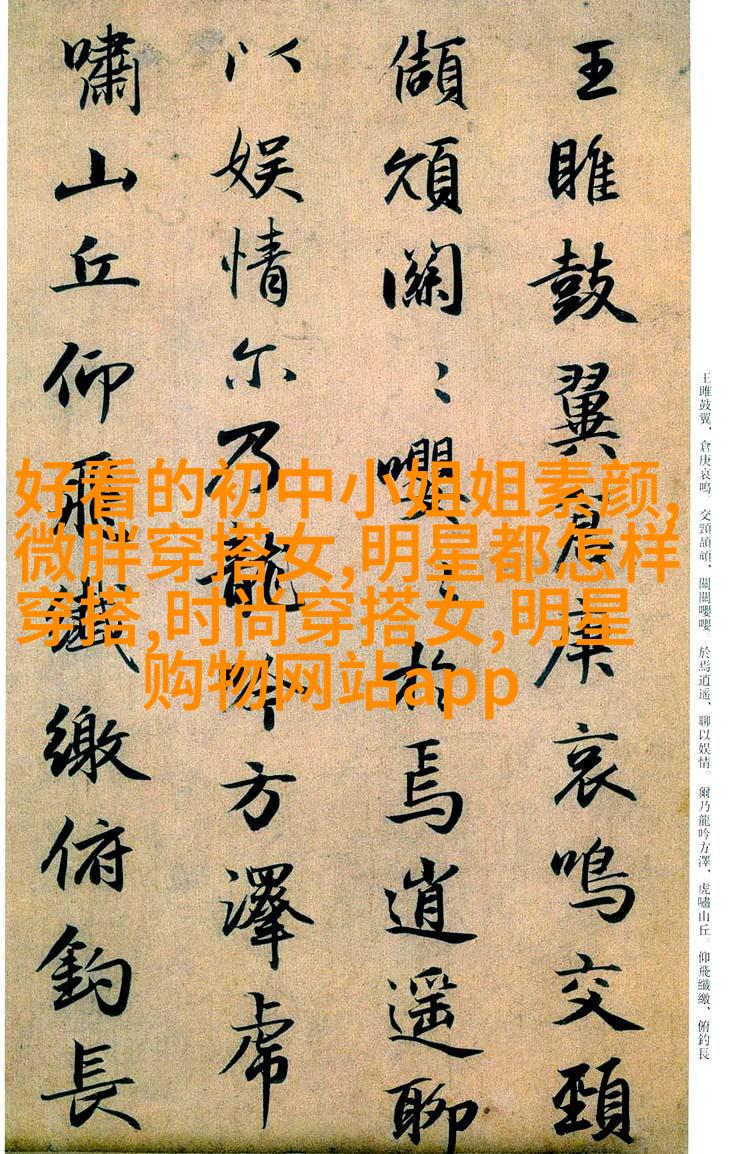 王雎鼓翼倉庚哀鳴交頸
頡頏關〻嚶〻於焉逍遥聊
以娱情尔乃龍吟方澤虎
嘯山丘仰飛纖繳俯釣長
好看的初中小姐姐素颜,
微胖穿搭女,明星都怎样
穿搭,时尚穿搭女,明星
购物网站app
王雎鼓翼、倉庚哀鳴。交頸頡頏、關關嚶嚶。於焉逍遥、聊以娱情。爾乃龍吟方澤、虎嘯山丘。仰飛纖繳、俯釣長